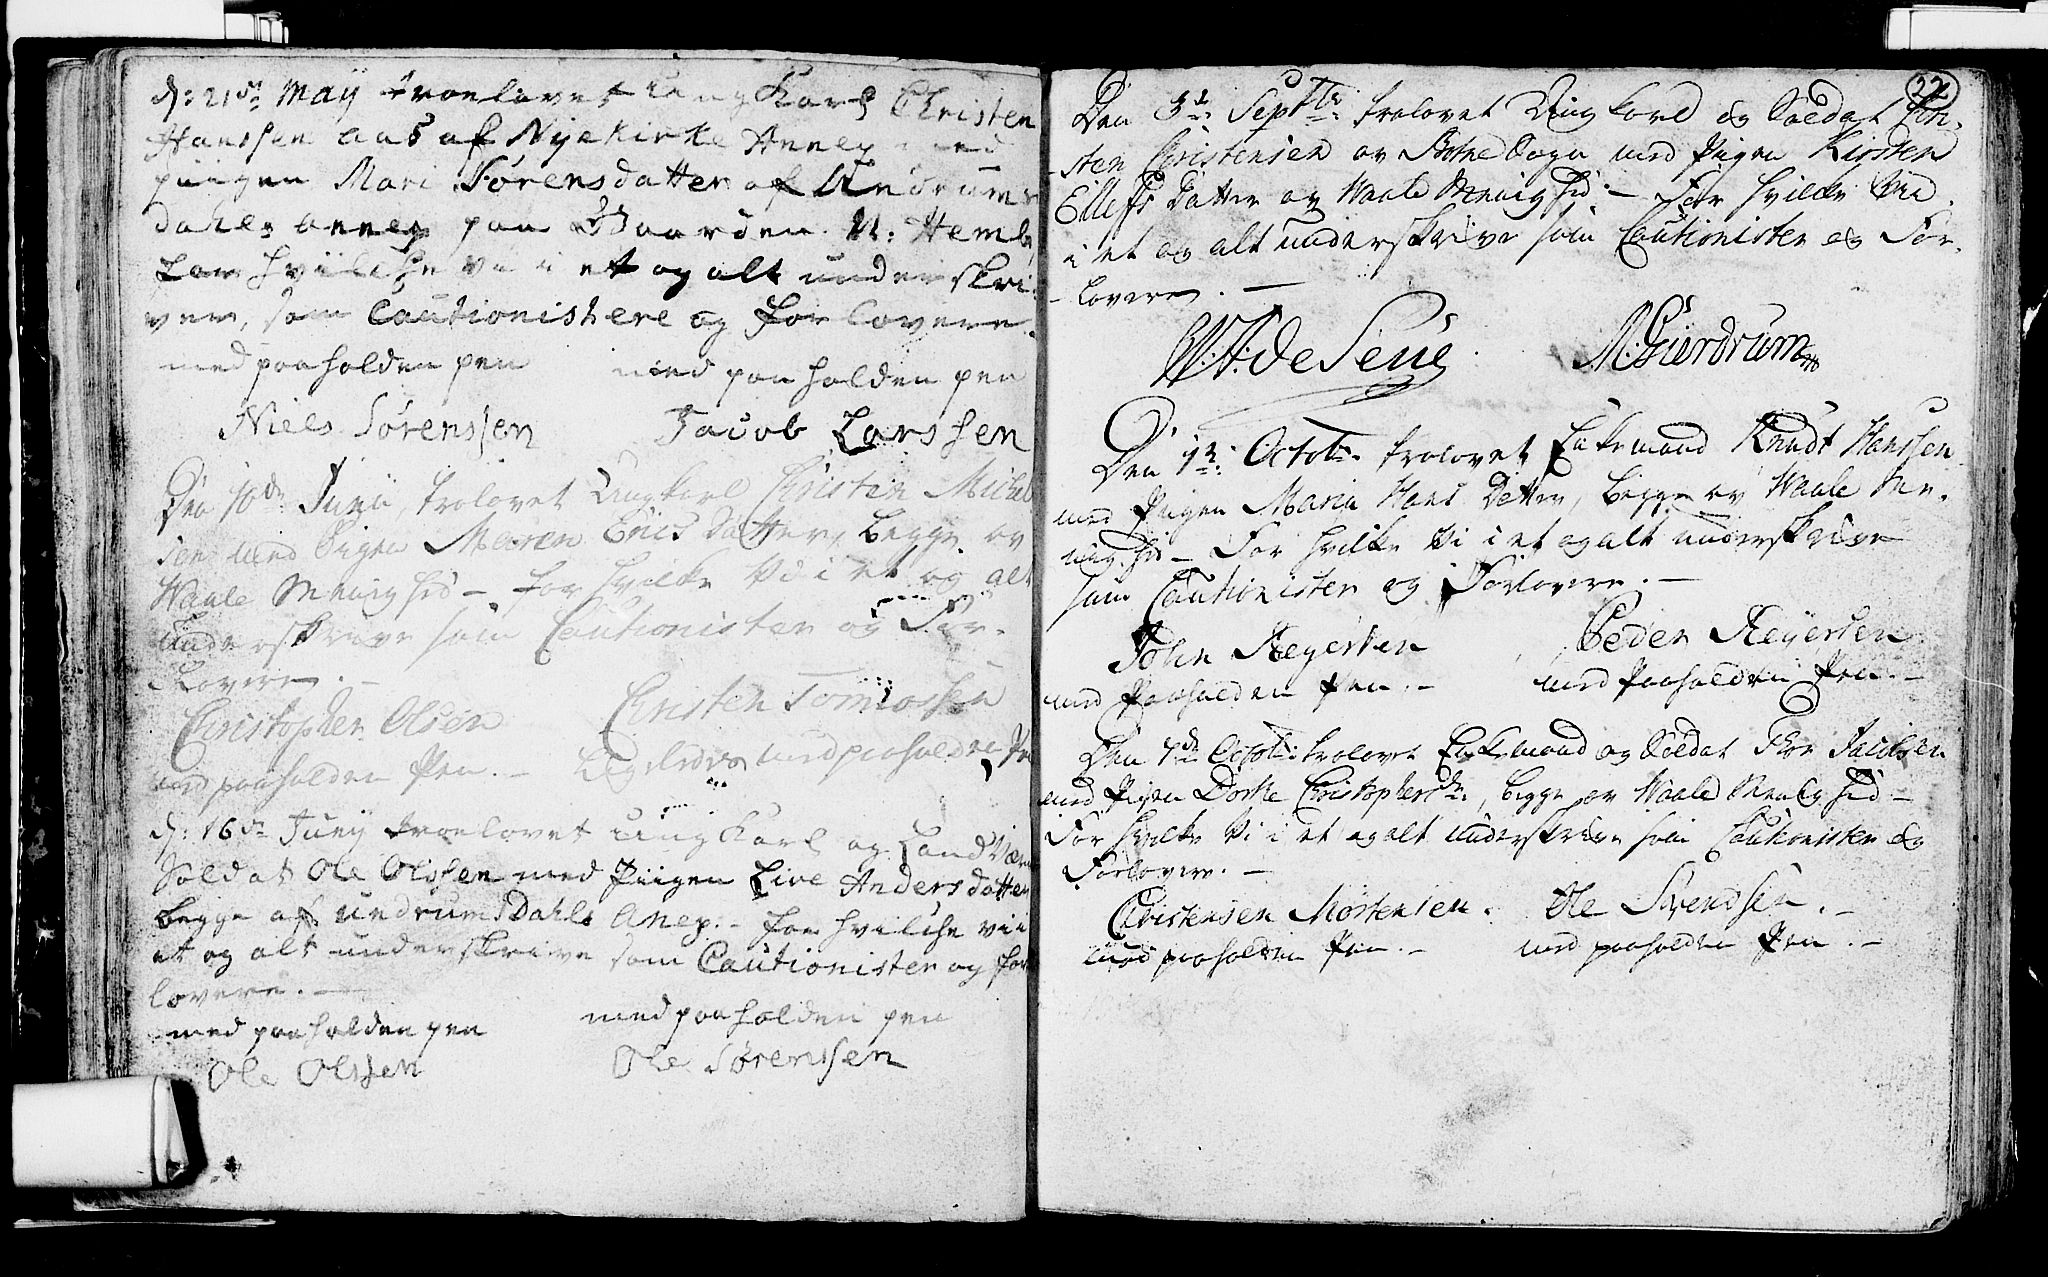 d: 21de May troelovet ung Karl Christen
Hanssen aas af Nyekirke Annex med
piigen Mari Sørensdatter af Undrums
dahls annex paa Gaarden N: Hemb
for hvilche vi i et og alt under skri:
ver, som Cautionistere og for lovere.
med paaholden pen med paa holden pen
Niels Sørenssen Jacob Larssen
Den 10de Junii trolovet Ungkarl Christen Michel
sen med Pigen Maren Erics datter, begge av
Waale Menighed – for hvilke Vi i et og alt
underskrive som Cautionister og For-
lovere. –
Christopher Olsen Christen Tomassen
med paaholden Pen. – Ligeledes med paaholden Pen
d: 16de Juny troelovet ung Karl og Land Værn
Soldat Ole Olssen med Piigen Live Anders datter
begge af undrumsDahls Anex. – for hvilche vi i
et og alt under skrive som Cautionister og for
lovere. –
med paa holden pen med paa holden pen
Ole Olssen Ole Sørenssen
22
Den 3de Septbr: trolovet Ung karl og Soldat Chri-
sten Christensen av Botne Sogn med Pigen Kirsten
Ellefs Datter av Waale Menighed. – For hvilke Vi
i et og alt underskrive som Cautionister og For-
lovere. –
W: F: de Seue M: Gierdrum
Den 1te Octobr. trolovet Enkemand Knudt Hanssen
med Pigen Maria Hans Datter, begge av Waale Me-
nighed – For hvilke Vi i et og alt underskrive
som Cautionister og Forlovere. –
John Reyersen Peder Reyersen
med Paaholden Pen. – med Paaholden Pen. –
Den 7de Octobr: trolovet Enkemand og Soldat Thor Jacobsen
med Pigen Dorthe Christophersdr., begge av Waale Menighed –
For hvilke Vi i et og alt underskrive som Cautionister og
Forlovere. –
Christensen Mortensen. Ole Svendsen. –
med paaholden Pen. – med paaholden Pen. –